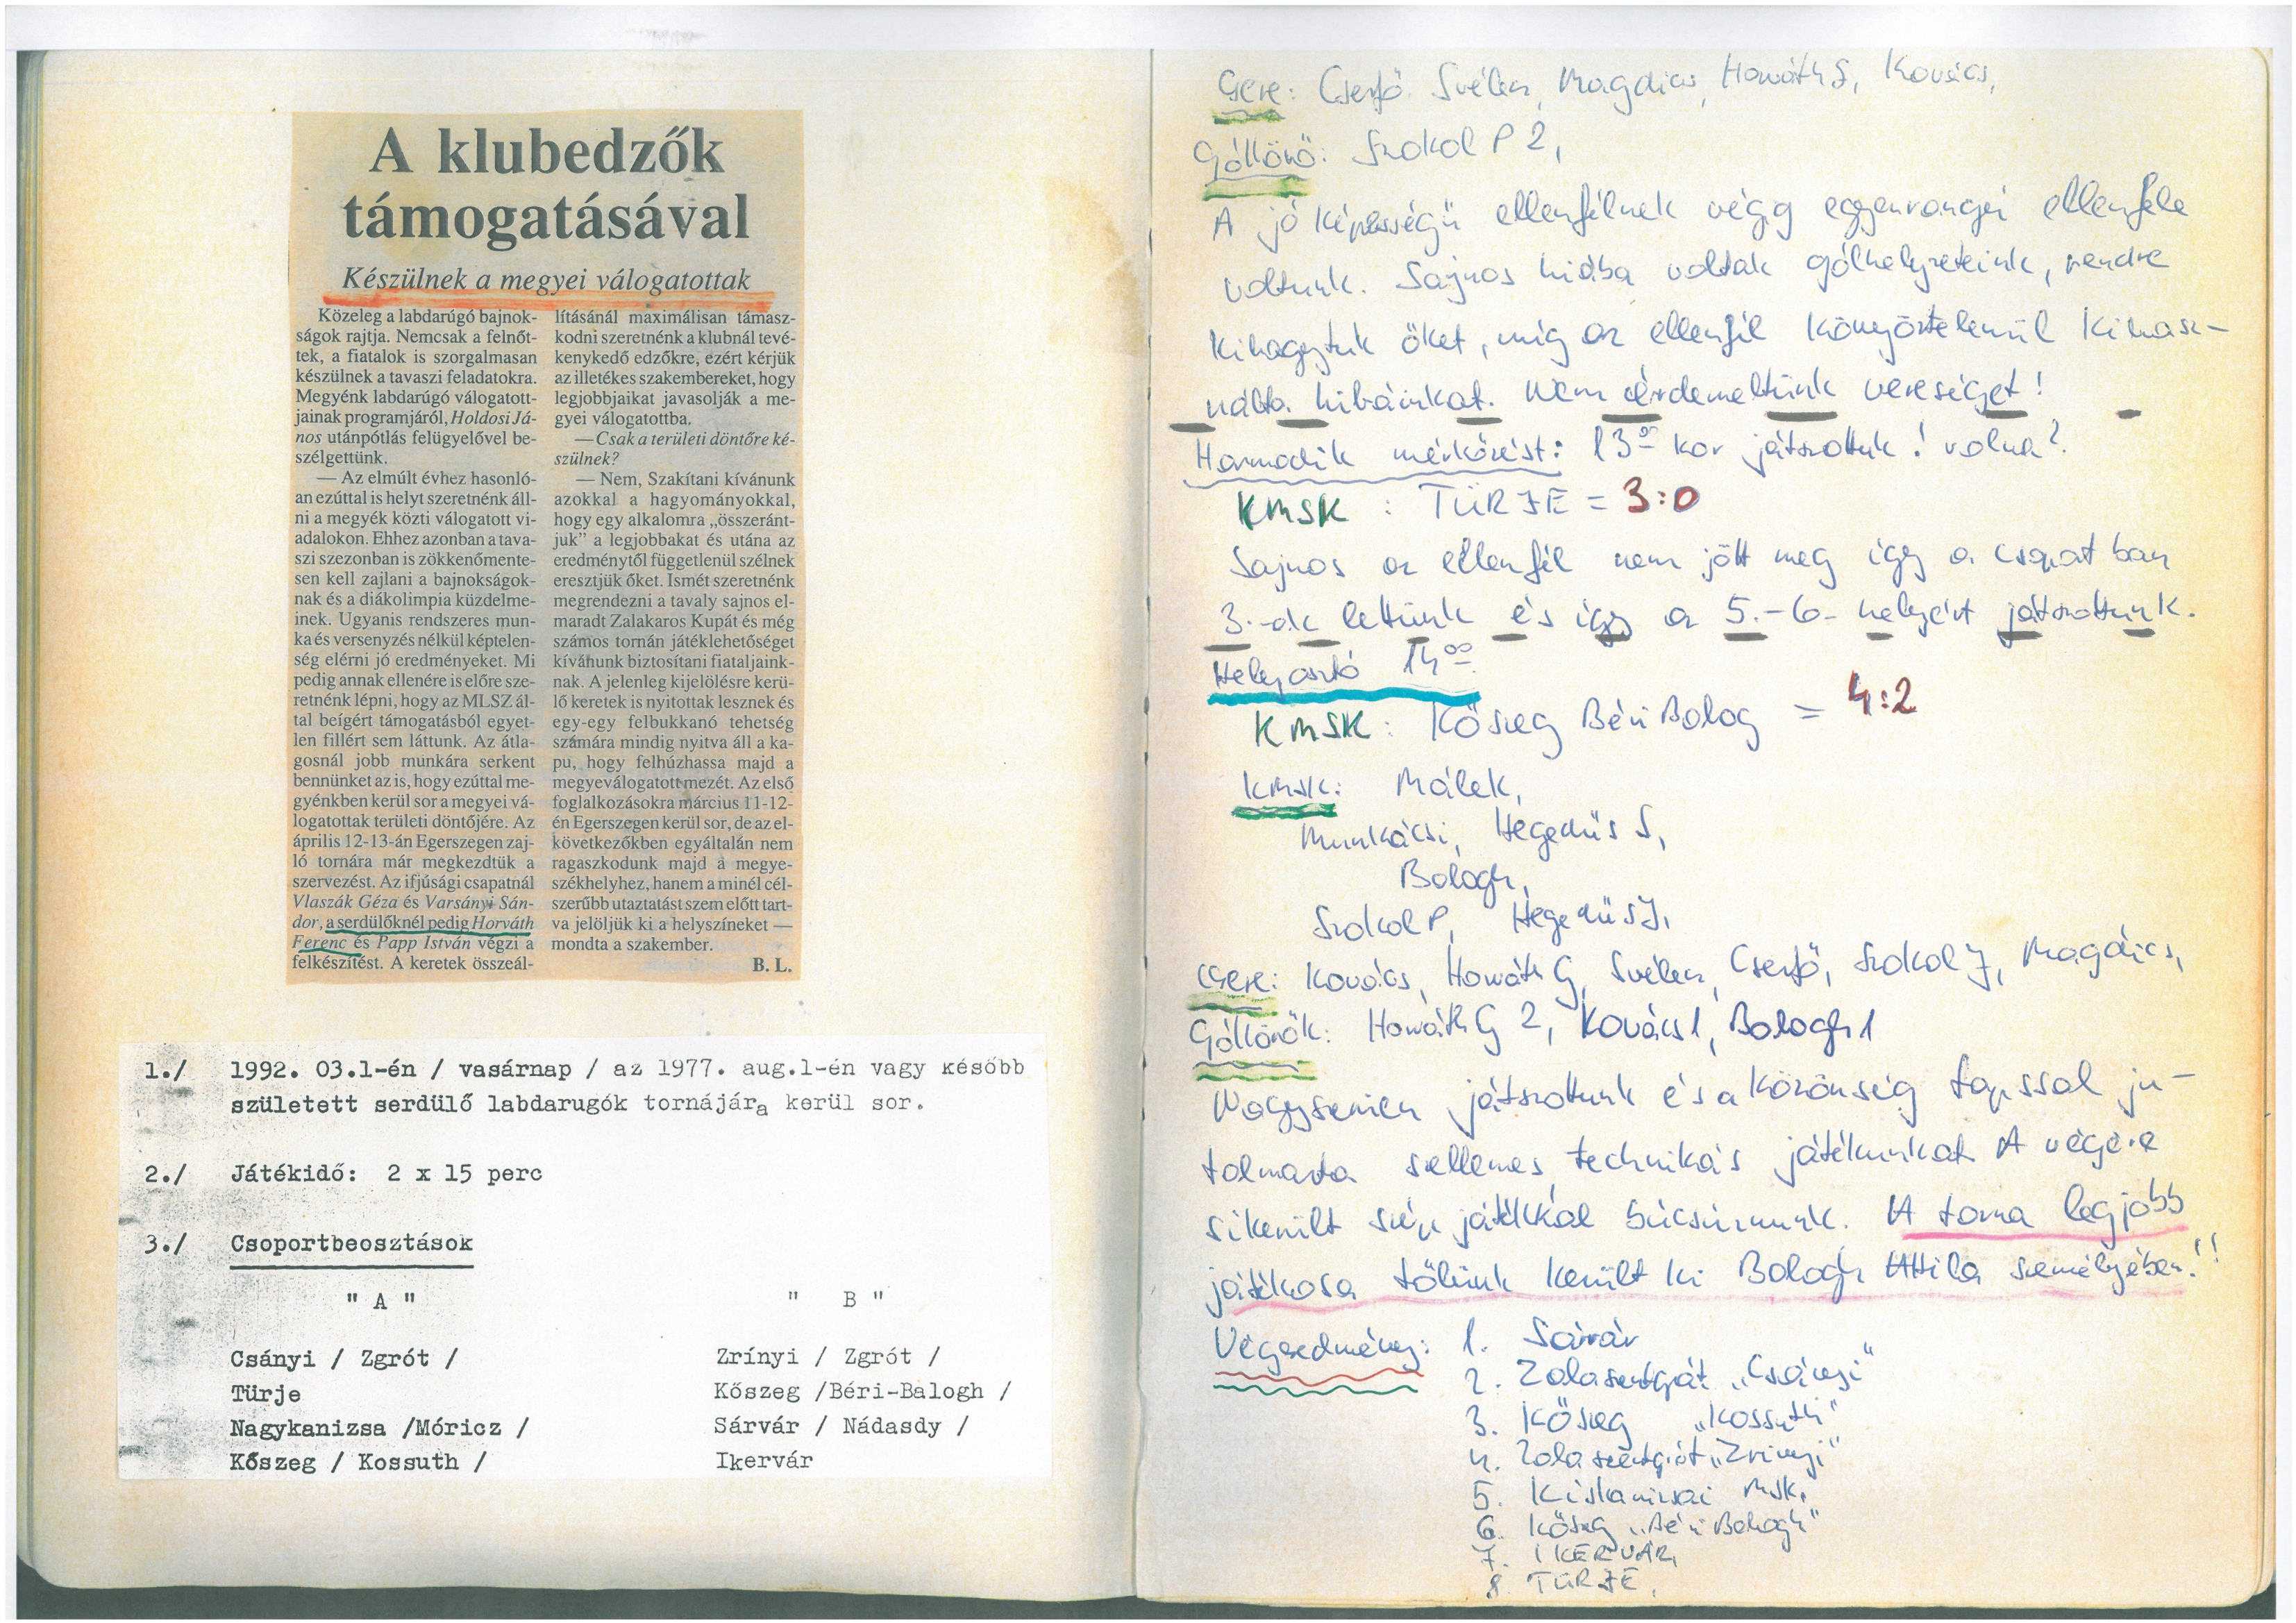 A klubedzők
támogatásával
Készülnek a megyei válogatottak
Közeleg a labdarúgó bajnok-
ságok rajtja. Nemcsak a felnőt-
tek, a fiatalok is szorgalmasan
készülnek a tavaszi feladatokra.
Megyénk labdarúgó válogatott-
jainak programjáról, Holdosi Já-
nos utánpótlás felügyelővel be-
szélgettünk.
— Az elmúlt évhez hasonló-
an ezúttal is helyt szeretnénk áll-
ni a megyék közti válogatott vi-
adalokon. Ehhez azonban a tava-
szi szezonban is zökkenőmente-
sen kell zajlani a bajnokságok-
nak és a diákolimpia küzdelme-
inek. Ugyanis rendszeres mun-
ka és versenyzés nélkül képtelen-
ség elérni jó eredményeket. Mi
pedig annak ellenére is előre sze-
retnénk lépni, hogy az MLSZ ál-
tal beígért támogatásból egyet-
len fillért sem láttunk. Az átla-
gosnál jobb munkára serkent
bennünket az is, hogy ezúttal me-
gyénkben kerül sor a megyei vá-
logatottak területi döntőjére. Az
április 12-13-án Egerszegen zaj-
ló tornára már megkezdtük a
szervezést. Az ifjúsági csapatnál
Vlaszák Géza és Varsányi Sán-
dor, a serdülőknél pedig Horváth
Ferenc és Papp István végzi a
felkészítést. A keretek összeál-
lításánál maximálisan támasz-
kodni szeretnénk a klubnál tevé-
kenykedő edzőkre, ezért kérjük
az illetékes szakembereket, hogy
legjobbjaikat javasolják a me-
gyei válogatottba.
— Csak a területi döntőre ké-
szülnek?
— Nem, Szakítani kívánunk
azokkal a hagyományokkal,
hogy egy alkalomra „összeránt-
juk” a legjobbakat és utána az
eredménytől függetlenül szélnek
eresztjük őket. Ismét szeretnénk
megrendezni a tavaly sajnos el-
maradt Zalakaros Kupát és még
számos tornán játéklehetőséget
kívánunk biztosítani fiataljaink-
nak. A jelenleg kijelölésre kerü-
lő keretek is nyitottak lesznek és
egy-egy felbukkanó tehetség
számára mindig nyitva áll a ka-
pu, hogy felhúzhassa majd a
megyeválogatott mezét. Az első
foglalkozásokra március 11-12-
én Egerszegen kerül sor, de az el-
következőkben egyáltalán nem
ragaszkodunk majd a megye-
székhelyhez, hanem a minél cél-
szerűbb utaztatást szem előtt tart-
va jelöljük ki a helyszíneket —
mondta a szakember.
B. L.
1./ 1992. 03.1-én / vasárnap / az 1977. aug.1-én vagy később
született serdülő labdarugók tornájára kerül sor.
2./ Játékidő: 2 x 15 perc
3./ Csoportbeosztások
" A " " B "
Csányi / Zgrót / Zrínyi / Zgrót /
Türje Kőszeg /Béri-Balogh /
Nagykanizsa /Móricz / Sárvár / Nádasdy /
Kőszeg / Kossuth / Ikervár
Csere: Cserfő Svélen, Magdics, Horváth G, Kovács,
Góllövő: Szokol P 2,
A jó képességű ellenfélnek végig egyenrangú ellenfele
voltunk. Sajnos hiába voltak gólhelyzeteink, rendre
kihagytuk őket, míg az ellenfél könyörtelenül kihasz-
nálta hibáinkat. Nem érdemeltünk vereséget!
Harmadik mérkőzést: 13 00 kor játszottuk! volna?
KMSK : TÜRJE = 3:0
Sajnos az ellenfél nem jött meg így a csoportban
3.-ak lettünk és így a 5.-6- helyért játszottunk.
Helyosztó 14 00
KMSK : Kőszeg Béri Balog = 4:2
KMSK: Málek,
Munkácsi, Hegedüs S,
Balogh,
Szokol P, Hegedüs J,
Csere: Kovács, Horváth G, Svélen, Cserfő, Szokol J, Magdics,
Góllövők: Horváth G 2, Kovács 1, Balogh 1
Nagyszerűen játszottunk és a közönség tapssal ju-
talmazta szellemes, technikás játékunkat. A végére
sikerült szép játékkal búcsúznunk. A torna legjobb
játékosa tőlünk került ki Balogh Attila személyében!!
Végeredmény: 1. Sárvár
2. Zalaszentgrót „Csányi”
3. Kőszeg „Kossuth”
4. Zalaszentgrót „Zrinyi”
5. Kiskanizsai MSK.
6. Kőszeg „Béri Balogh”
7. IKERVÁR,
8. TÜRJE,